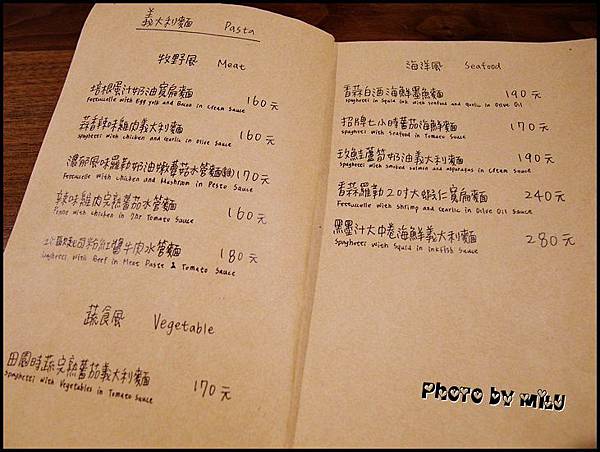 義大利麵 Pasta
牧野風 Meat
培根蛋汁奶油寬扁麵 160元
Fettuccelle with Egg yolk and Bacon in Cream Sauce
蒜香辣味雞肉義大利麵 160元
Spaghetti with chicken and Garlic in Olive Sauce
濃郁風味羅勒奶油嫩蘑菇水管麵(雞) 170元
Fettuccelle with Chicken and Mushroom in Pesto Sauce
辣味雞肉完熟蕃茄水管麵 160元
Penne with chicken in Tomato Sauce
紅醬牛肉水管麵 180元
Spaghetti with Beef in Meat Paste & Tomato Sauce
蔬食風 Vegetable
田園時蔬完熟蕃茄義大利麵 170元
Spaghetti with Vegetables in Tomato Sauce
海洋風 Seafood
香蒜白酒海鮮墨魚麵 190元
Spaghetti in Squid ink with Seafood and Garlic in Olive Oil
招牌七小時蕃茄海鮮麵 170元
Spaghetti with Seafood in Tomato Sauce
玫鮭蘆筍奶油義大利麵 190元
Spaghetti with Smoked Salmon and asparagus in Cream Sauce
香蒜羅勒20寸大蝦仁寬扁麵 240元
Fettuccelle with Shrimp and Garlic in Olive Oil Sauce
黑墨汁大中卷海鮮義大利麵 280元
Spaghetti with Squid in Inkfish Sauce
Photo by milu